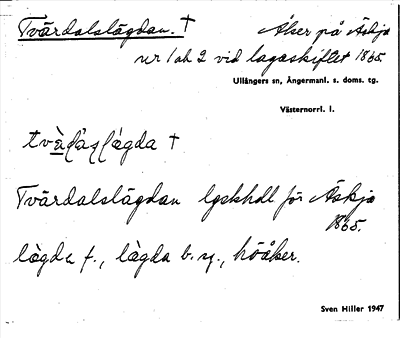 Tvärdalslägdan. † Åker på Äskja
nr 1 och 2 vid lagaskiftet 1865.
Ullångers sn, Ångermanl. s. doms. tg.
Västernorrl. l.
†
Tvärdalslägdan lgskhdl för Äskja
1865.
lägda f., lägda b. sg., höåker.
Sven Hiller 1947